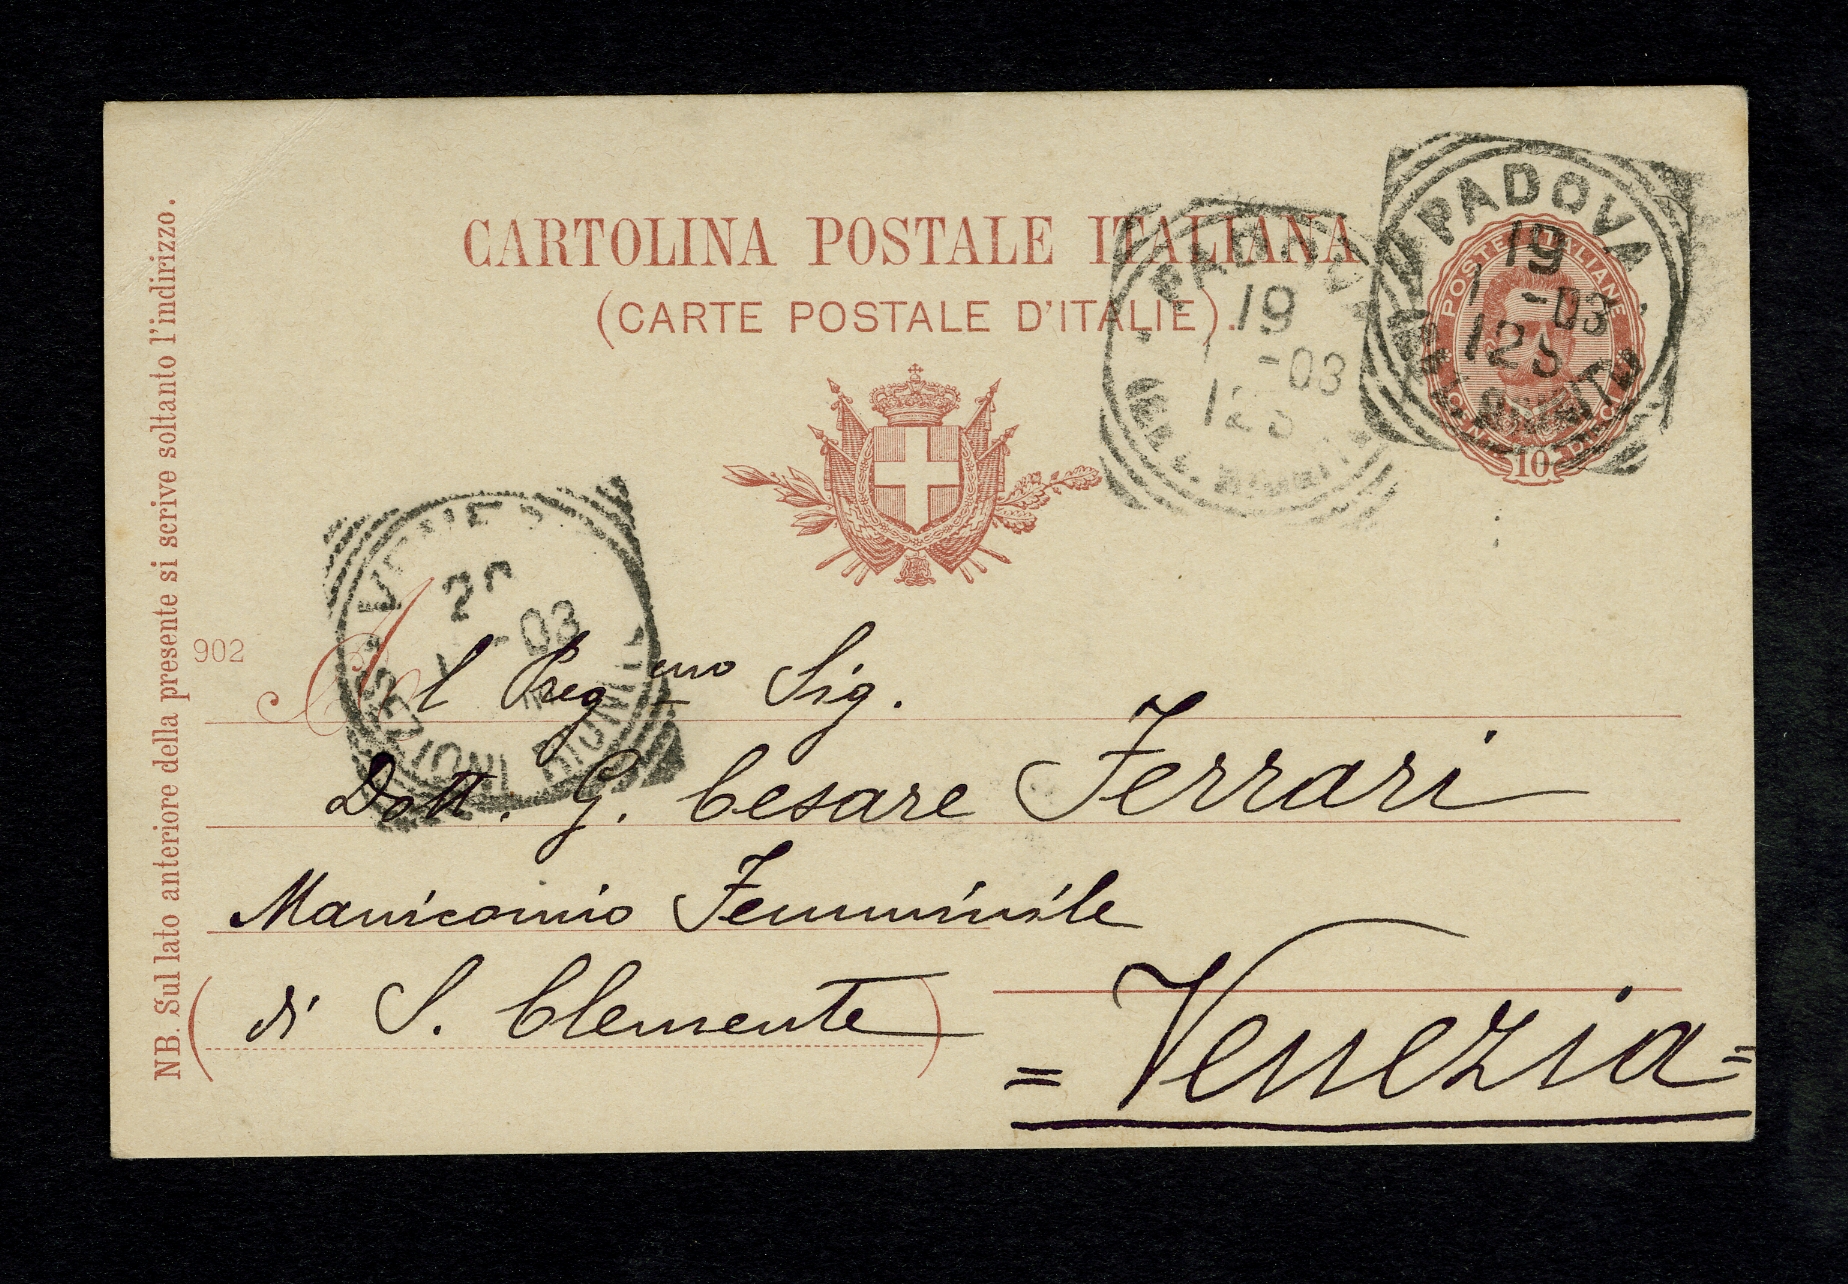 CARTOLINA POSTALE ITALIANA
(CARTE POSTALE D'ITALIE).
PADOVA
19
1 -03
12S
PADOVA
19
1 -03
12S
POSTE ITALIANE
10
VENEZIA
20
1 -03
902
Al Pregmo Sig.
Dott. G. Cesare Ferrari
Manicomio Femminile
di S. Clemente
= Venezia =
NB. Sul lato anteriore della presente si scrive soltanto l'indirizzo.